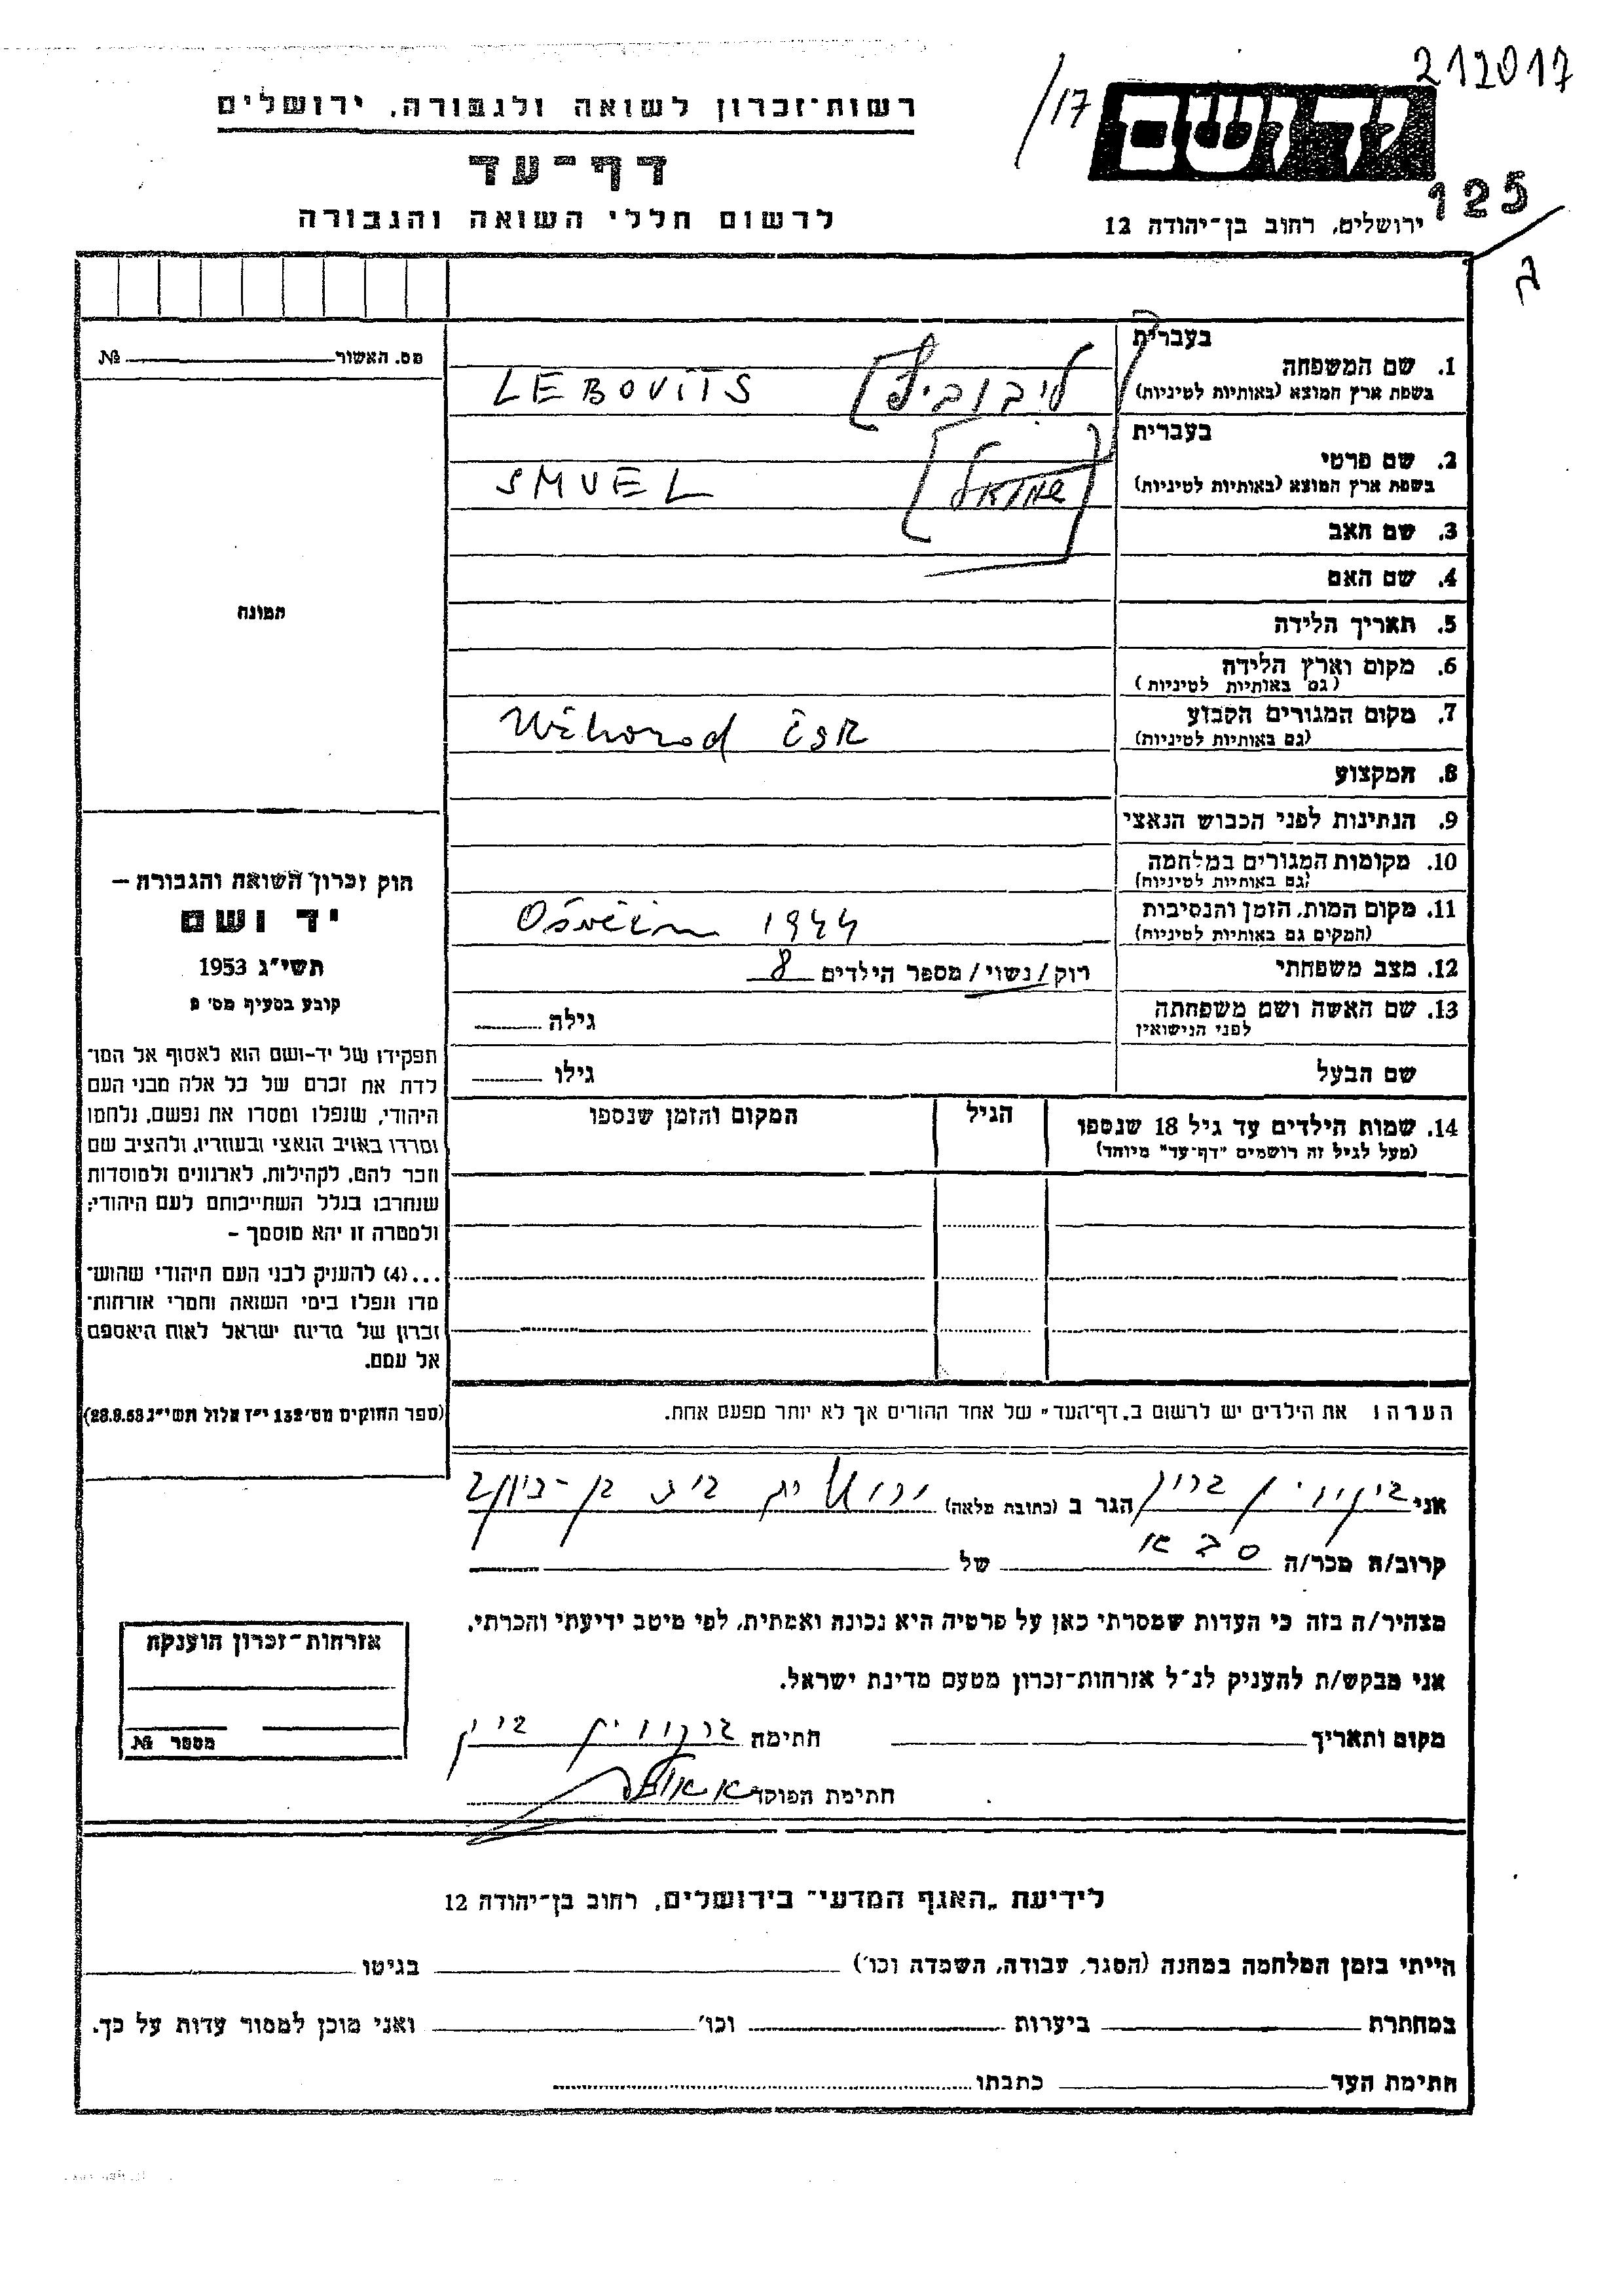 212017
/17
יד ושם
רשות־זכרון לשואה ולגבורה, ירושלים
דף־עד
לרשום חללי השואה והגבורה
125
ירושלים, רחוב בן־יהודה 12
בעברית
1. שם המשפחה
בשפת ארץ המוצא (באותיות לטיניות)
[ליבוביץ]
LEBOVITS
בעברית
2. שם פרטי
בשפת ארץ המוצא (באותיות לטיניות)
[שמואל]
SMUEL
3. שם האב
4. שם האם
5. תאריך הלידה
6. מקום וארץ הלידה
(גם באותיות לטיניות)
7. מקום המגורים הקבוע
(גם באותיות לטיניות)
Užhorod ČSR
8. המקצוע
9. הנתינות לפני הכבוש הנאצי
10. מקומות המגורים במלחמה
(גם באותיות לטיניות)
11. מקום המות, הזמן והנסיבות
(המקום גם באותיות לטיניות)
Osvěčim 1944
12. מצב משפחתי
רוק/נשוי/מספר הילדים 8
13. שם האשה ושם משפחתה
לפני הנישואין
גילה
שם הבעל
גילו
14. שמות הילדים עד גיל 18 שנספו
(מעל לגיל זה רושמים "דף־עד" מיוחד)
הגיל
המקום והזמן שנספו
הערה: את הילדים יש לרשום ב„דף־העד" של אחד ההורים אך לא יותר מפעם אחת.
מס. האשור № 
תמונה
חוק זכרון השואה והגבורה —
יד ושם
תשי"ג 1953
קובע בסעיף מס' 2
תפקידו של יד-ושם הוא לאסוף אל המו־
לדת את זכרם של כל אלה מבני העם
היהודי, שנפלו ומסרו את נפשם, נלחמו
ומרדו באויב הנאצי ובעוזריו, ולהציב שם
וזכר להם, לקהילות, לארגונים ולמוסדות
שנחרבו בגלל השתייכותם לעם היהודי;
ולמטרה זו יהא מוסמך —
...(4) להעניק לבני העם היהודי שהוש־
מדו ונפלו בימי השואה והמרי אזרחות־
זכרון של מדינת ישראל לאות היאספם
אל עמם.
(ספר החוקים מס' 132 י"ז אלול תשי"ג 28.8.53)
אני הגר ב (כתובת מלאה)
קרוב/ה מכר/ה סבא של
מצהיר/ה בזה כי העדות שמסרתי כאן על פרטיה היא נכונה ואמתית, לפי מיטב ידיעתי והכרתי.
אני מבקש/ת להעניק לנ"ל אזרחות־זכרון מטעם מדינת ישראל.
מקום ותאריך חתימה
חתימת הפוקד
אזרחות־זכרון הוענקה
מספר №
לידיעת „האגף המדעי" בירושלים, רחוב בן־יהודה 12
הייתי בזמן המלחמה במחנה (הסגר, עבודה, השמדה וכו') בגיטו
במחתרת ביערות וכו' ואני מוכן למסור עדות על כך.
חתימת העד כתבתו